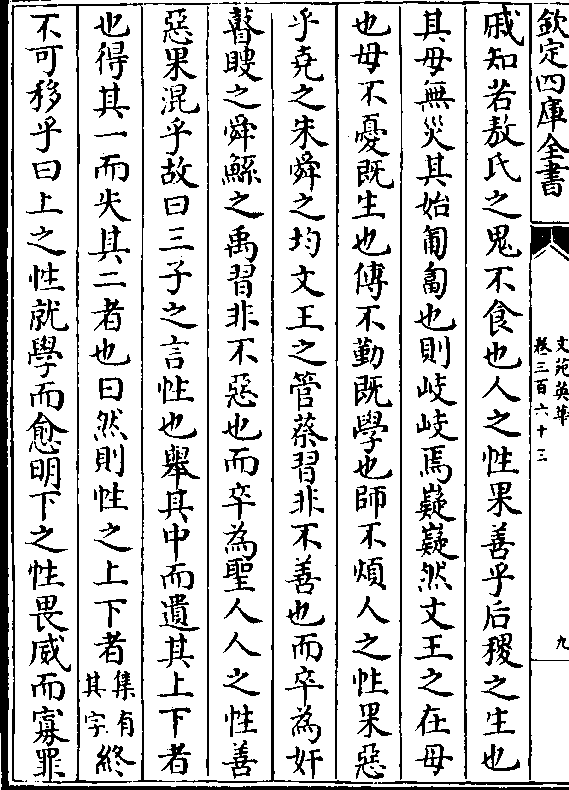 欽定四庫全書
文苑英華
卷三百六十三
九
戚知若敖氏之鬼不食也人之性果善乎后稷之生也
其母無災其始匍匐也則岐岐焉嶷嶷然文王之在母
也母不憂既生也傅不勤既學也師不煩人之性果惡
乎堯之朱舜之均文王之管蔡習非不善也而卒為奸
瞽瞍之舜鯀之禹習非不惡也而卒為聖人人之性善
惡果混乎故曰三子之言性也舉其中而遺其上下者
也得其一而失其二者也曰然則性之上下者集有其字終
不可移乎曰上之性就學而愈明下之性畏威而寡罪